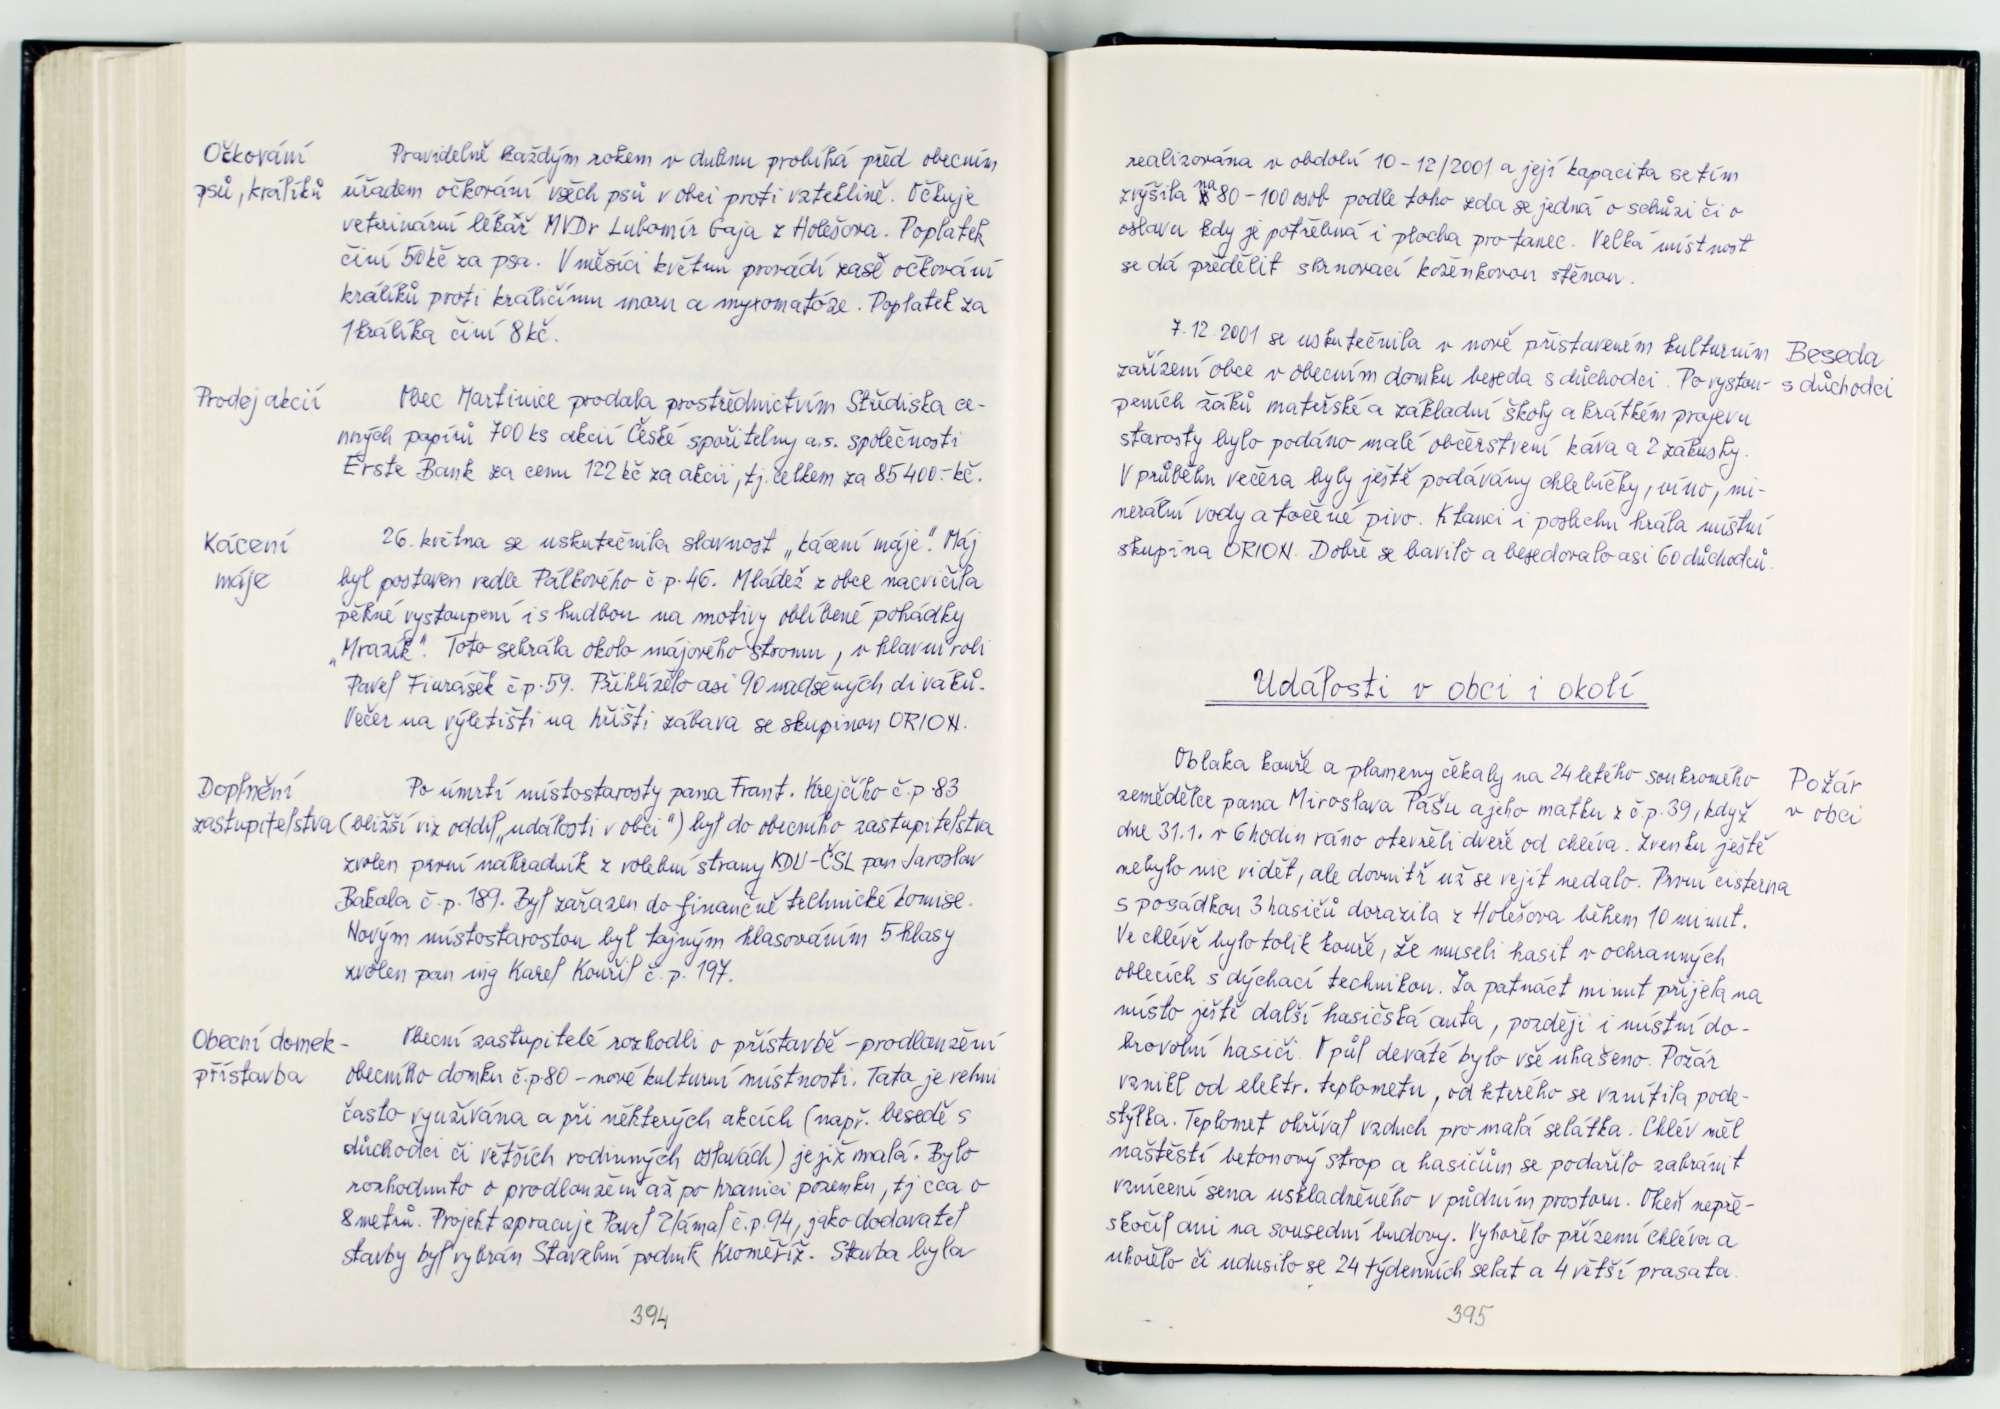 Očkování
psů, králíků
Pravidelně každým rokem v dubnu probíhá před obecním
úřadem očkování všech psů v obci proti vzteklině. Očkuje
veterinární lékař MVDr Lubomír Gaja z Holešova. Poplatek
činí 50 kč za psa. V měsíci květnu provádí zasě očkování
králíků proti králičímu moru a myxomatóze. Poplatek za
1 králíka činí 8 kč.
Prodej akcií
Obec Martinice prodala prostřednictvím Střediska ce-
nných papírů 700 ks akcií České spořitelny a.s. společnosti
Erste Bank za cenu 122 kč za akcii, tj. celkem za 85 400.- kč.
Kácení
máje
26. května se uskutečnila slavnost „kácení máje“. Máj
byl postaven vedle Pálkového č.p. 46. Mládež z obce nacvičila
pěkné vystoupení i s hudbou na motivy oblíbené pohádky
„Mrazík“. Toto sehrála okolo májového stromu, v hlavní roli
Pavel Fiurášek č.p. 59. Přihlíželo asi 90 nadšených diváků.
Večer na výletišti na hřišti zábava se skupinou ORION.
Doplnění
zastupitelstva
Po úmrtí místostarosty pana Frant. Krejčího č.p. 83
(bližší viz oddíl „události v obci“) byl do obecního zastupitelstva
zvolen první náhradník z volební strany KDU-ČSL pan Jaroslav
Bakala č.p. 189. Byl zařazen do finančně technické komise.
Novým místostarostou byl tajným hlasováním 5 hlasy
zvolen pan ing Karel Kouřil č.p. 197.
Obecní domek -
přístavba
Obecní zastupitelé rozhodli o přístavbě - prodloužení
obecního domku č.p 80 - nové kulturní místnosti. Tato je velmi
často využívána a při některých akcích (např. besedě s
důchodci či větších rodinných oslavách) je již malá. Bylo
rozhodnuto o prodloužení až po hranici pozemku, tj cca o
8 metrů. Projekt zpracuje Pavel Zlámal č.p. 94, jako dodavatel
stavby byl vybrán Stavební podnik Kroměříž. Stavba byla
394
realizována v období 10 - 12/2001 a její kapacita se tím
zvýšila na 80 - 100 osob podle toho zda se jedná o schůzi či o
oslavu kdy je potřebná i plocha pro tanec. Velká místnost
se dá předělit shrnovací koženkovou stěnou.
7.12.2001 se uskutečnila v nově přistaveném kulturním
zařízení obce v obecním domku beseda s důchodci. Po vystou-
peních žáků mateřské a základní školy a krátkém projevu
starosty bylo podáno malé občerstvení káva a 2 zákusky.
V průběhu večera byly ještě podávány chlebíčky, víno, mi-
nerální vody a točené pivo. K tanci i poslechu hrála místní
skupina ORION. Dobře se bavilo a besedovalo asi 60 důchodců.
Beseda
s důchodci
Události v obci i okolí
Oblaka kouře a plameny čekaly na 24 letého soukromého
zemědělce pana Miroslava Pášu a jeho matku z č.p. 39, když
dne 31.1. v 6 hodin ráno otevřeli dveře od chléva. Zvenku ještě
nebylo nic vidět, ale dovnitř už se vejít nedalo. První cisterna
s posádkou 3 hasičů dorazila z Holešova během 10 minut.
Ve chlévě bylo tolik kouře, že museli hasit v ochranných
oblecích s dýchací technikou. Za patnáct minut přijela na
místo ještě další hasičská auta, později i místní do-
brovolní hasiči. V půl deváté bylo vše uhašeno. Požár
vznikl od elektr. teplometu, od kterého se vznítila pode-
stýlka. Teplomet ohříval vzduch pro malá selátka. Chlév měl
naštěstí betonový strop a hasičům se podařilo zabránit
vznícení sena uskladněného v půdním prostoru. Oheň nepře-
skočil ani na sousední budovy. Vyhořelo přízemí chléva a
uhořelo či udusilo se 24 týdenních selat a 4 větší prasata.
Požár
v obci
395